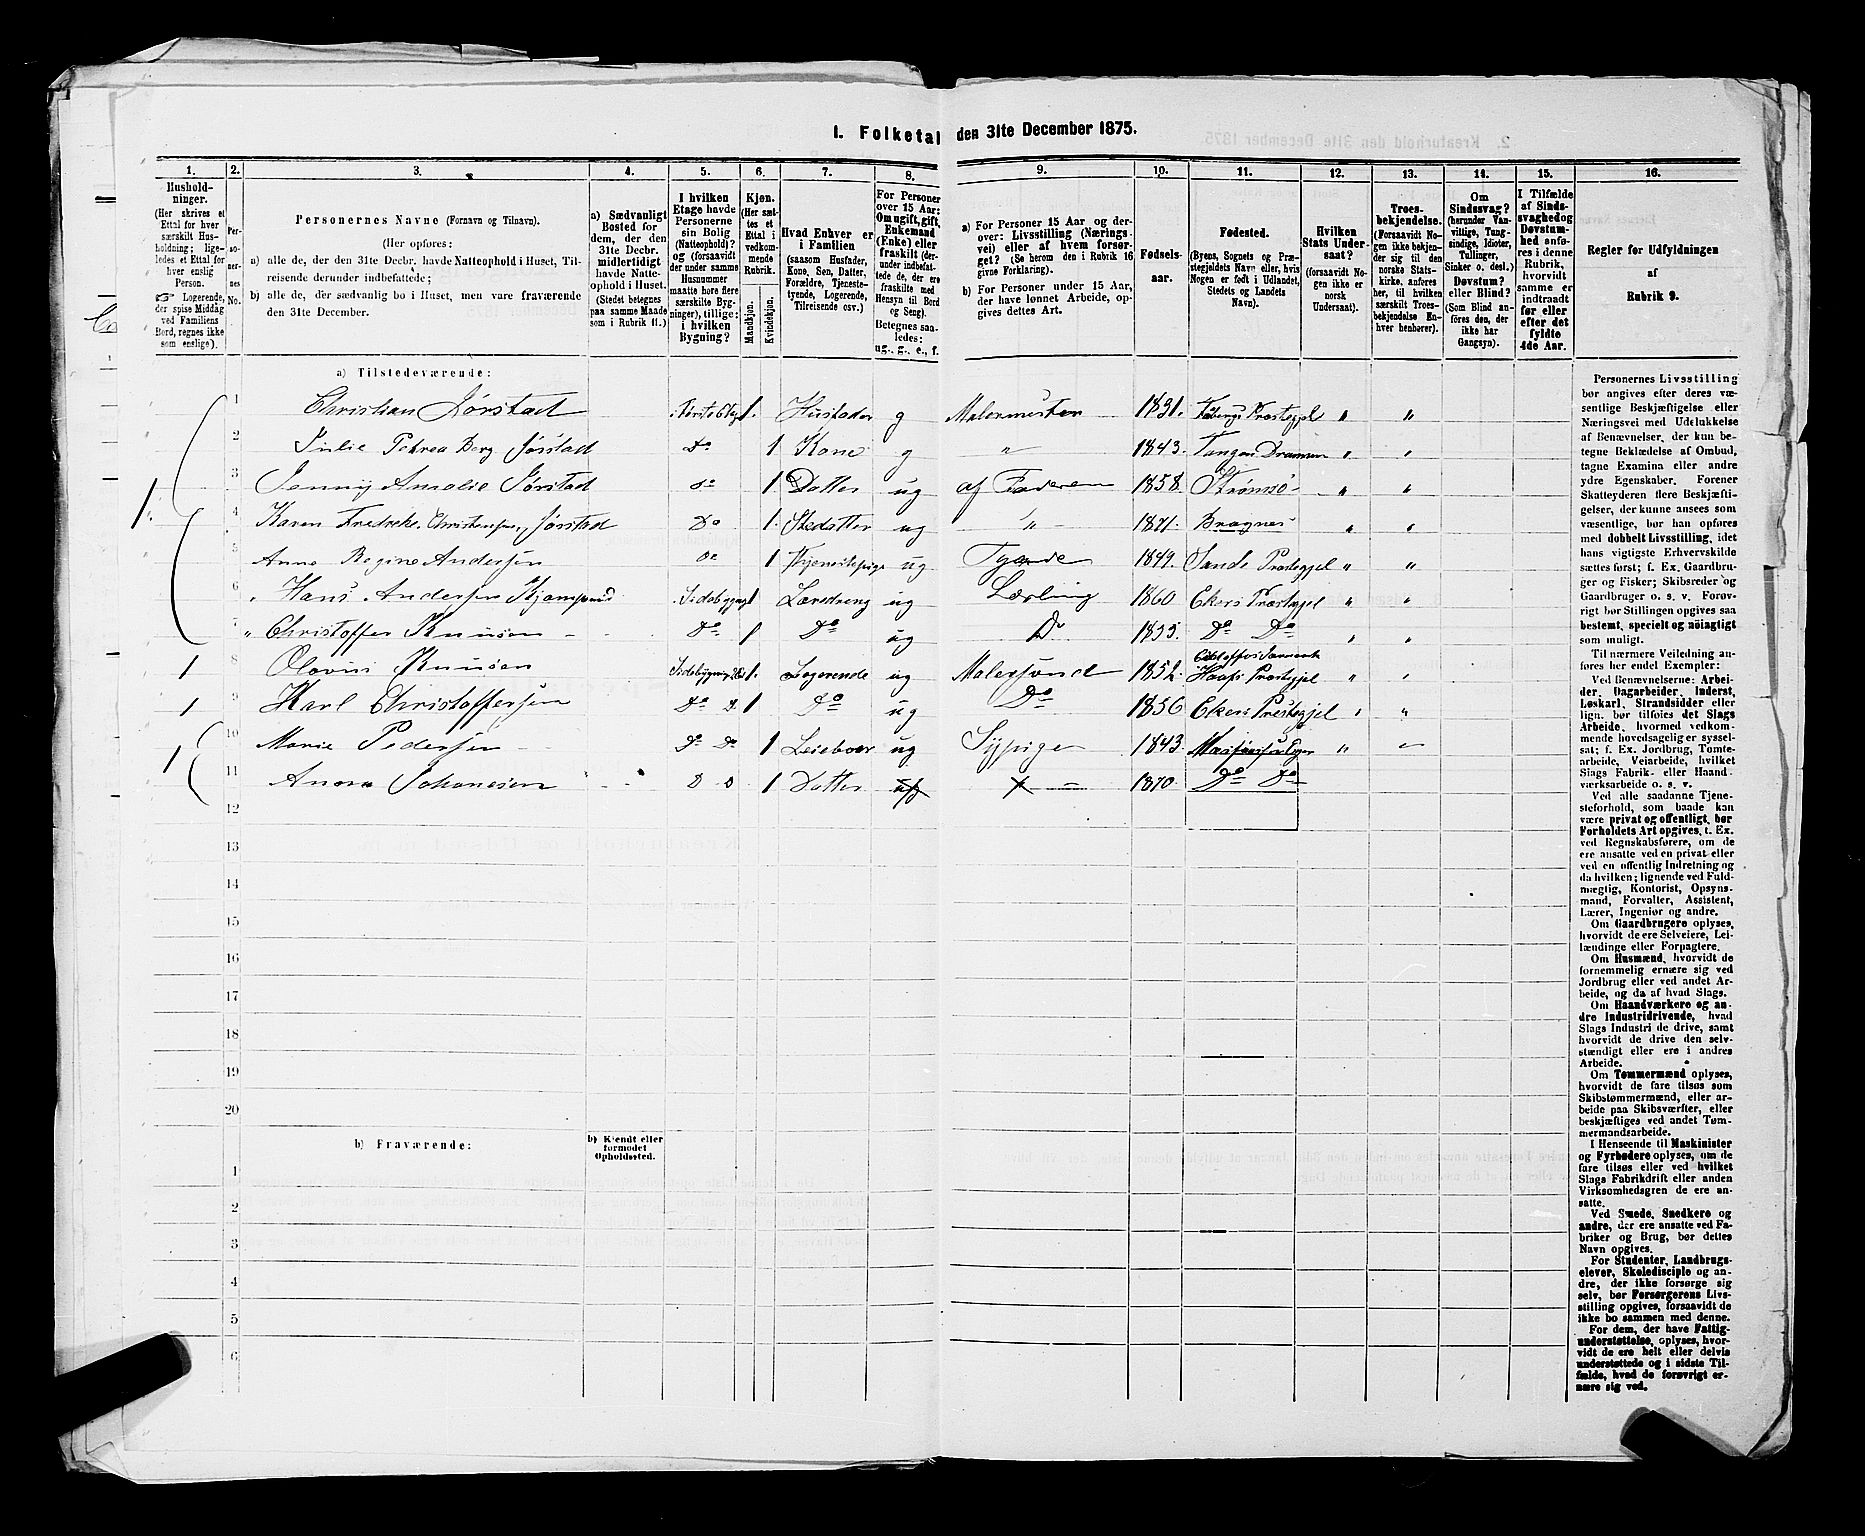 1. Folketal den 31te December 1875.
1. 2. 3. 4. 5. 6. 7. 8. 9. 10. 11. 12. 13. 14. 15. 16.
Husholdninger.
(Her skrives et
Ettal for hver
særskilt Husholdning;
ligeledes et Ettal for
hver enslig
Person.
☞ Logerende,
der spise Middag
ved Familiens
Bord, regnes ikke
som enslige).
Personernes No.
Personernes Navne (Fornavn og Tilnavn).
(Her opføres:
a) alle de, der den 31te Decbr. havde Natteophold i Huset, Tilreisende
derunder indbefattede;
b) alle de, der sædvanlig bo i Huset, men vare fraværende
den 31te December.
a) Sædvanligt
Bosted for
dem, der den
31te Decbr.
midlertidigt
havde Natteophold
i Huset.
(Stedet betegnes
paa samme Maade
som i Rubrik 11.)
I hvilken
Etage havde
Personerne
sin Bolig
(Natteophold)?
og (forsaavidt
der under samme
Husnummer
maatte høre flere
særskilte Bygninger),
tillige:
i hvilken
Bygning?
Kjøn.
(Her sættes
et
Ettal i
vedkommende
Rubrik.
Mandkjøn.
Kvindekjøn.
Hvad Enhver er
i Familien
(saasom Husfader,
Kone, Søn, Datter,
Forældre, Tjenestetyende,
Logerende,
Tilreisende osv.)
For Personer
over 15 Aar:
Om ugift, gift,
Enkemand
(Enke) eller
fraskilt (derunder
indbefattede
de, der ere
fraskilte med
Hensyn til Bord
og Seng).
Betegnes saaledes:
ug., g., e., f.
a) For Personer 15 Aar og derover:
Livsstilling (Næringsvei)
eller af hvem forsørget?
(Se herom den i Rubrik 16
givne Forklaring).
b) For Personer under 15 Aar,
der have lønnet Arbeide, opgives
dettes Art.
Fødselsaar.
Fødested.
(Byens, Sognets og Præstegjeldets
Navn eller, hvis
Nogen er født i Udlandet,
Stedets og Landets
Navn).
Hvilken
Stats Undersaat?
(forsaavidt Nogen
ikke er
norsk
Undersaat).
Troesbekjendelse.
(Forsaavidt Nogen
ikke bekjender
sig til den
norske Statskirke,
anføres
her, til hvilken
særskilt Troesbekjendelse
Enhver
henhører).
Om
Sindssvag?
(herunder Vanvittige,
Tungsindige,
Idioter,
Tullinger,
Sinker o. desl.)
Døvstum?
eller Blind?
(Som Blind anføres
den, der
ikke har
Gangsyn).
I Tilfælde
af Sindssvaghed
og
Døvstumhed
anføres
i denne
Rubrik,
hvorvidt
samme er
indtraadt
før eller
efter det
fyldte
4de Aar.
Regler før Udfyldningen
af
Rubrik 9.
a) Tilstedeværende:
1 Christian Jørstad Første Etage 1. Husfader g Malermester 1831. Præstegjel " "
2 Julie Petrea Berg Jørstad Do 1 Kone g " 1843. Tangen Drammen " "
3 Jenny Amalie Jørstad do 1 Datter ug af Faderen 1858. Strømsø " "
1.
4 Karen Fredrekke Christensen, Jørstad Do 1. Stedatter ug " 1871. Bragnes " "
5 Anne Regine Andersen do 1 Tjenestepige ug Tyende 1849. Sande Præstegjel " "
6 Hans Andersen Sidebygng 1 Læredreng ug Lærling 1860 Ekers Præstegjel " "
7 " Christoffer Knusen Do 1 Do ug Do 1855. Do Do " "
1 8 Olavus Knusen Sidebygning 1. Logerende ug Malersvend 1852. Præstegjel " "
1 9 Karl Christoffersen Do D. 1 Do ug Do 1856 Ekers Prestegjel " "
1 10 Marie Pedersen Do Do 1 Leieboer ug Sypige 1843. " "
11 Anna Johanesen D D 1 Datter 1870 Do Do
12
13
14
15
16
17
18
19
20
b) Fraværende: b) Kjendt eller
formodet
Opholdssted.
1
2
3
4
5
6
Personernes Livsstilling
bør angives efter deres væsentlige
Beskjæftigelse eller
Næringsvei med Udelukkelse
af Benævnelser, der kun betegne
Beklædelse af Ombud,
tagne Examina eller andre
ydre Egenskaber. Forener
Skatteyderen flere Beskjæftigelser,
der kunne ansees som
væsentlige, bør han opføres
med dobbelt Livsstilling, idet
hans vigtigste Erhvervskilde
sættes først; f. Ex. Gaardbruger
og Fisker; Skibsreder og
Gaardbruger o. s. v. Forøvrigt
bør Stillingen opgives saa
bestemt, specielt og nøiagtigt
som muligt.
Til nærmere Veiledning anføres
her endel Exempler:
Ved Benævnelserne: Arbeider,
Dagarbeider, Inderst,
Løskarl, Strandsidder eller
lign. bør tilføies det Slags
Arbeide, hvormed vedkommende
hovedsagelig er sysselsat;
f. Ex. Jordbrug, Tomtearbeide,
Veiarbeide, hvilket
Slags Fabrik- eller Haandværksarbeide
o. s. v.
Ved alle saadanne Tjenesteforhold,
som baade kan
være privat og offentligt, bør
Forholdets Art opgives, t. Ex.
ved Regnskabsførere, om de
ere ansatte ved en privat eller
ved en offentlig Indretning og
da hvilken; lignende ved Fuldmægtig,
Kontorist, Opsynsmand,
Forvalter, Assistent,
Lærer, Ingeniør og andre.
Om Gaardbrugere oplyses,
hvorvidt de ere Selveiere, Leilændinge
eller Forpagtere.
Om Husmænd, hvorvidt de
fornemmelig ernære sig ved
Jordbrug eller ved andet Arbeide,
og da af hvad Slags.
Om Haandværkere og andre
Industridrivende, hvad
Slags Industri de drive, samt
hvorvidt de drive den selvstændigt
eller ere i andres
Arbeide.
Om Tømmermænd oplyses,
hvorvidt de fare tilsøs som
Skibstømmermænd, eller arbeide
paa Skibsværfter, eller
beskjæftiges ved andet Tømmermandsarbeide.
I Henseende til Maskinister
og Fyrbødere oplyses, om de
fare tilsøs eller ved hvilket
Slags Fabrikdrift eller anden
Virksomhedsgren de ere ansatte.
Ved Smede, Snedkere og
andre, der ere ansatte ved Fabriker
og Brug, bør dettes
Navn opgives.
For Studenter, Landbrugselever,
Skoledisciple og andre,
der ikke forsørge sig
selv, bør Forsørgerens Livsstilling
opgives, forsaavidt de
ikke bo sammen med denne.
For dem, der have Fattigunderstøttelse,
oplyses, hvorvidt
de ere helt eller delvis
understøttede og i sidste Tilfælde,
hvad de forøvrigt ernære
sig ved.